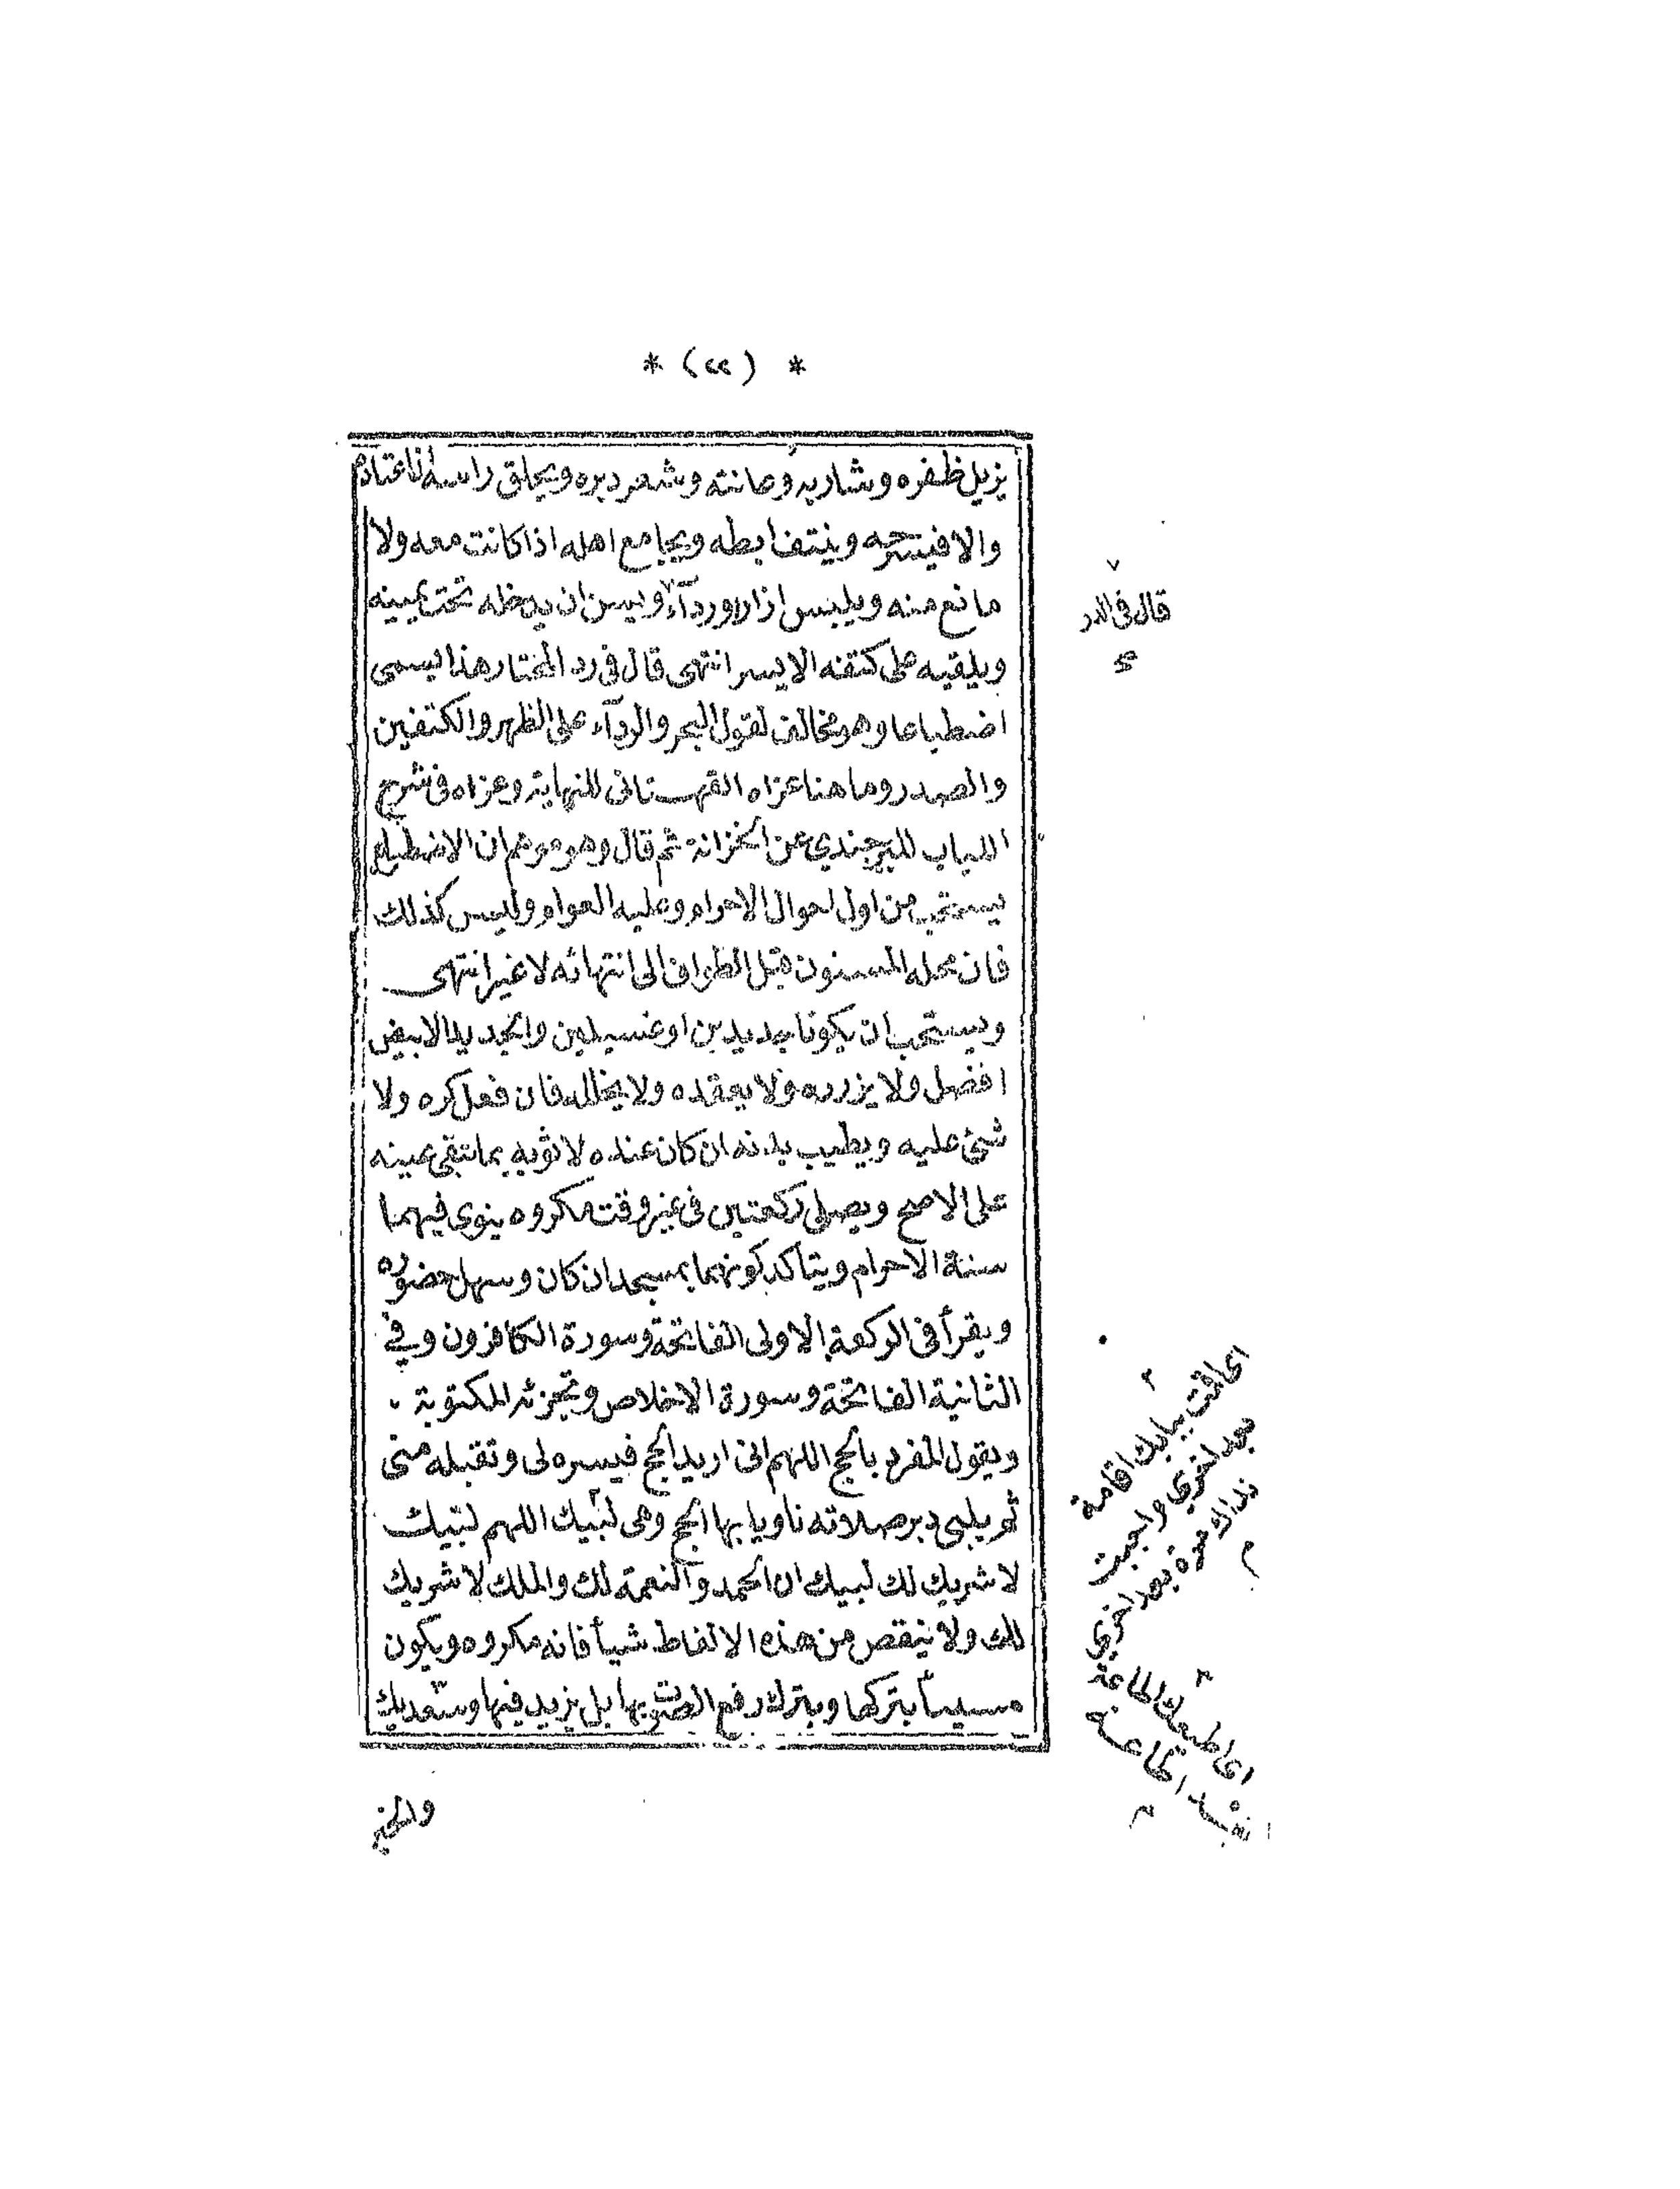 * (٢٢) *
يزيل ظفره وشاربه وعانته وشعر دبره ويحلق راسه ان اعتاده
والا فيسرحه وينتف ابطه ويجامع اهله اذا كانت معه ولا
مانع منه ويلبس ازارا وردآء ويسن ان يدخله تحت يمينه
ويلقيه على كتفه الايسر انتهى قال في رد المحتار هذا يسمى
اضطباعا وهو مخالف لقول البحر والردآء على الظهر والكتفين
والصدر وما هنا عزاه القهستانى للنهاية وعزاه فى شرح
اللباب للبرجندي عن الخزانة ثم قال وهو موهم ان الاضطباع
يستحب من اول احوال الاحرام وعليه العوام وليس كذلك
فان محله المسنون قبل الطواف الى انتهائه لا غير انتهى
ويستحب ان يكونا جديدين او غسيلين والجديد الابيض
افضل ولا يزرره ولا يعقده ولا يخلله فان فعل كره ولا
شئ عليه ويطيب بدنه ان كان عنده لا ثوبه بما تبقى عينه
على الاصح ويصلى ركعتين فى غير وقت مكروه ينوى فيهما
سنة الاحرام ويتاكد كونهما بمسجد ان كان وسهل حضوره
ويقرأ فى الركعة الاولى الفاتحة وسورة الكافرون وفي
الثانية الفاتحة وسورة الاخلاص وتجزئه المكتوبة .
ويقول المفرد بالحج اللهم انى اريد الحج فيسره لى وتقبله منى
ثم يلبى دبر صلاته ناويا بها الحج وهى لبيك اللهم لبيك
لا شريك لك لبيك ان الحمد والنعمة لك والملك لا شريك
لك ولا ينقص من هذه الالفاظ شيأ فانه مكروه ويكون
مسيئا بتركها وبترك رفع الصوت بها بل يزيد فيها وسعديك
والخير
قال فى الدر
صح
اى اقمت ببابك اقامة
بعد اخرى واجبت
نداك مرة بعد اخرى